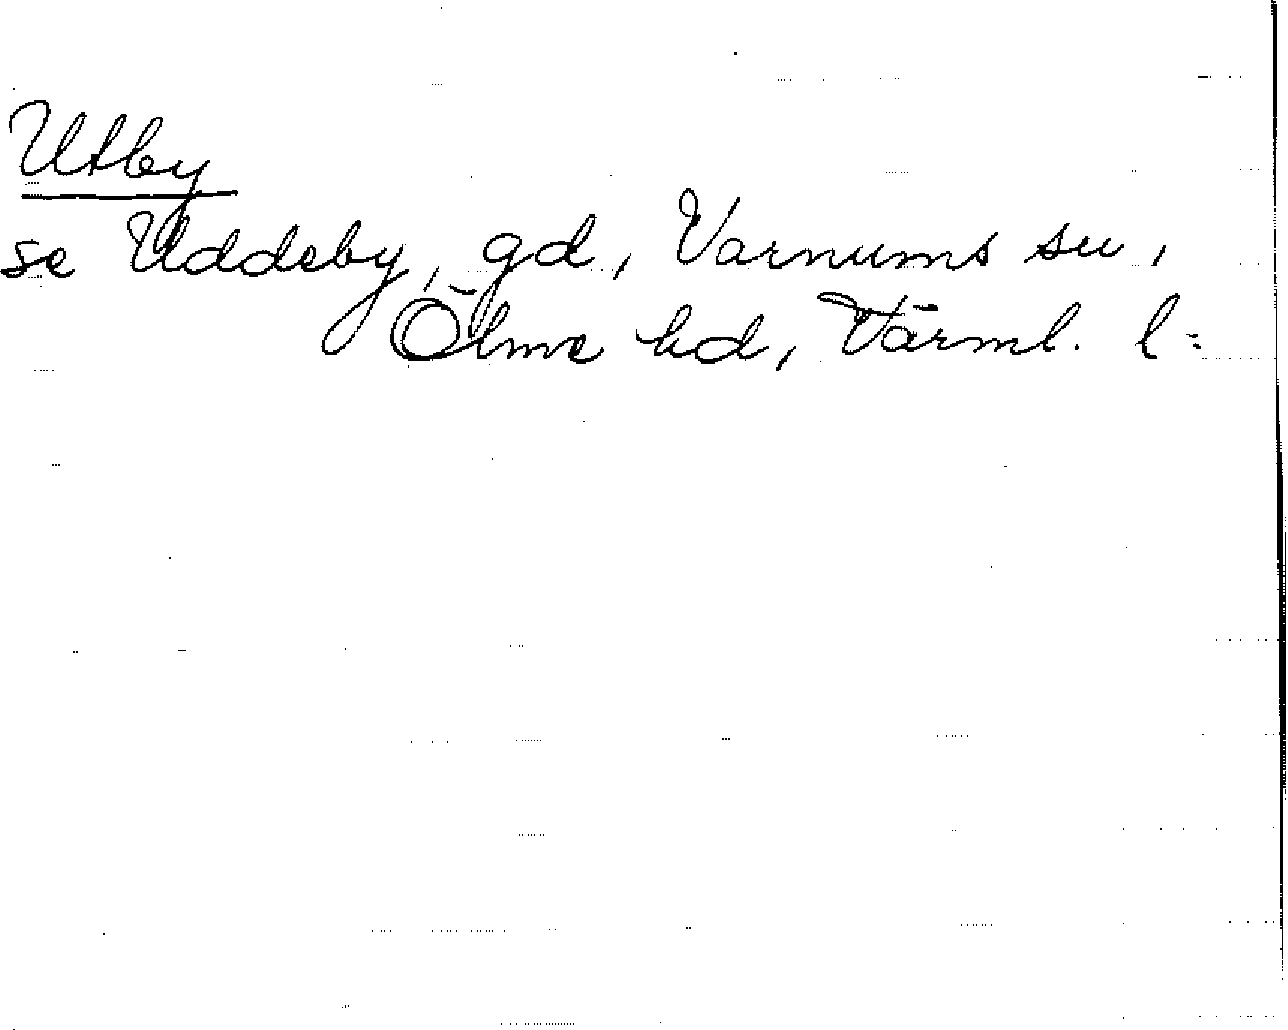 Utby
se Uddeby, gd, Varnums sn,
Ölme hd, Värml. l: